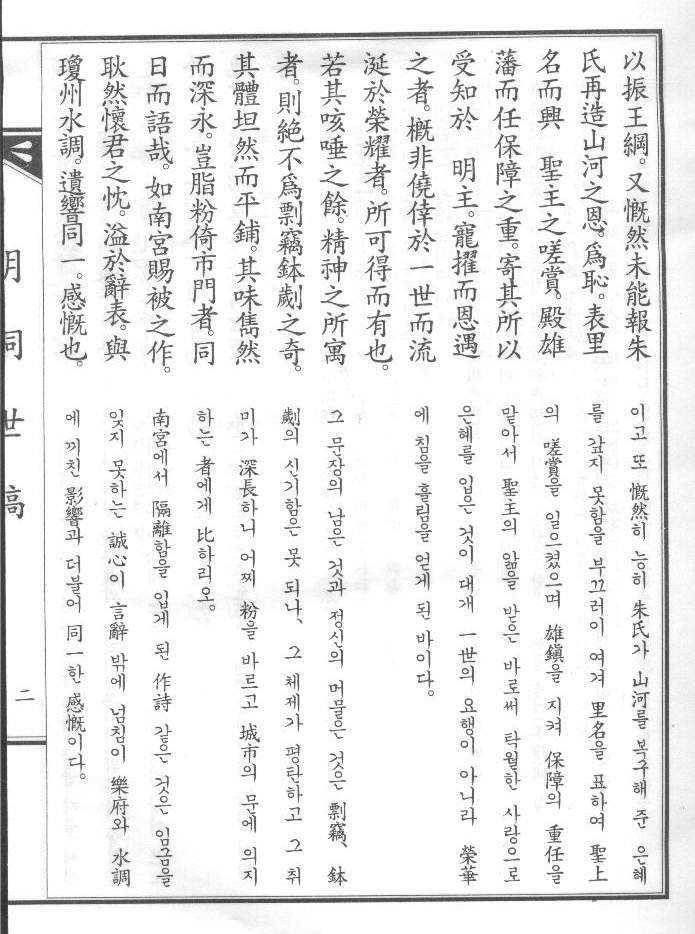 以振王綱。又慨然未能報朱
氏再造山河之恩。爲恥。表里
名而興　聖主之嗟賞。殿雄
藩而任保障之重。寄其所以
受知於　明主。寵擢而恩遇
之者。槪非僥倖於一世而流
涎於榮耀者。所可得而有也。
若其咳唾之餘。精神之所寓
者。則絶不爲剽竊鉢劌之奇。
其體坦然而平鋪。其味雋然
而深永。豈脂粉倚市門者。同
日而語哉。如南宮賜被之作。
耿然懷君之忱。溢於辭表。與
瓊州水調。遺響同一。感慨也。
이고 또 慨然히 능히 朱氏가 山河를 복구해 준 은혜
를 갚지 못함을 부끄러이 여겨 里名을 표하여 聖上
의 嗟賞을 일으켰으며 雄鎭을 지켜 保障의 重任을
맡아서 聖主의 앎을 받은 바로써 탁월한 사랑으로
은혜를 입은 것이 대개 一世의 요행이 아니라 榮華
에 침을 흘림을 얻게 된 바이다。
그 문장의 남은 것과 정신의 머물은 것은 剽竊、鉢
劌의 신기함은 못 되나、그 체제가 평탄하고 그 취
미가 深長하니 어찌 粉을 바르고 城市의 문에 의지
하는 者에게 比하리오。
南宮에서 隔離함을 입게 된 作詩 같은 것은 임금을
잊지 못하는 誠心이 言辭 밖에 넘침이 樂府와 水調
에 끼친 影響과 더불어 同一한 感慨이다。
世稿
二